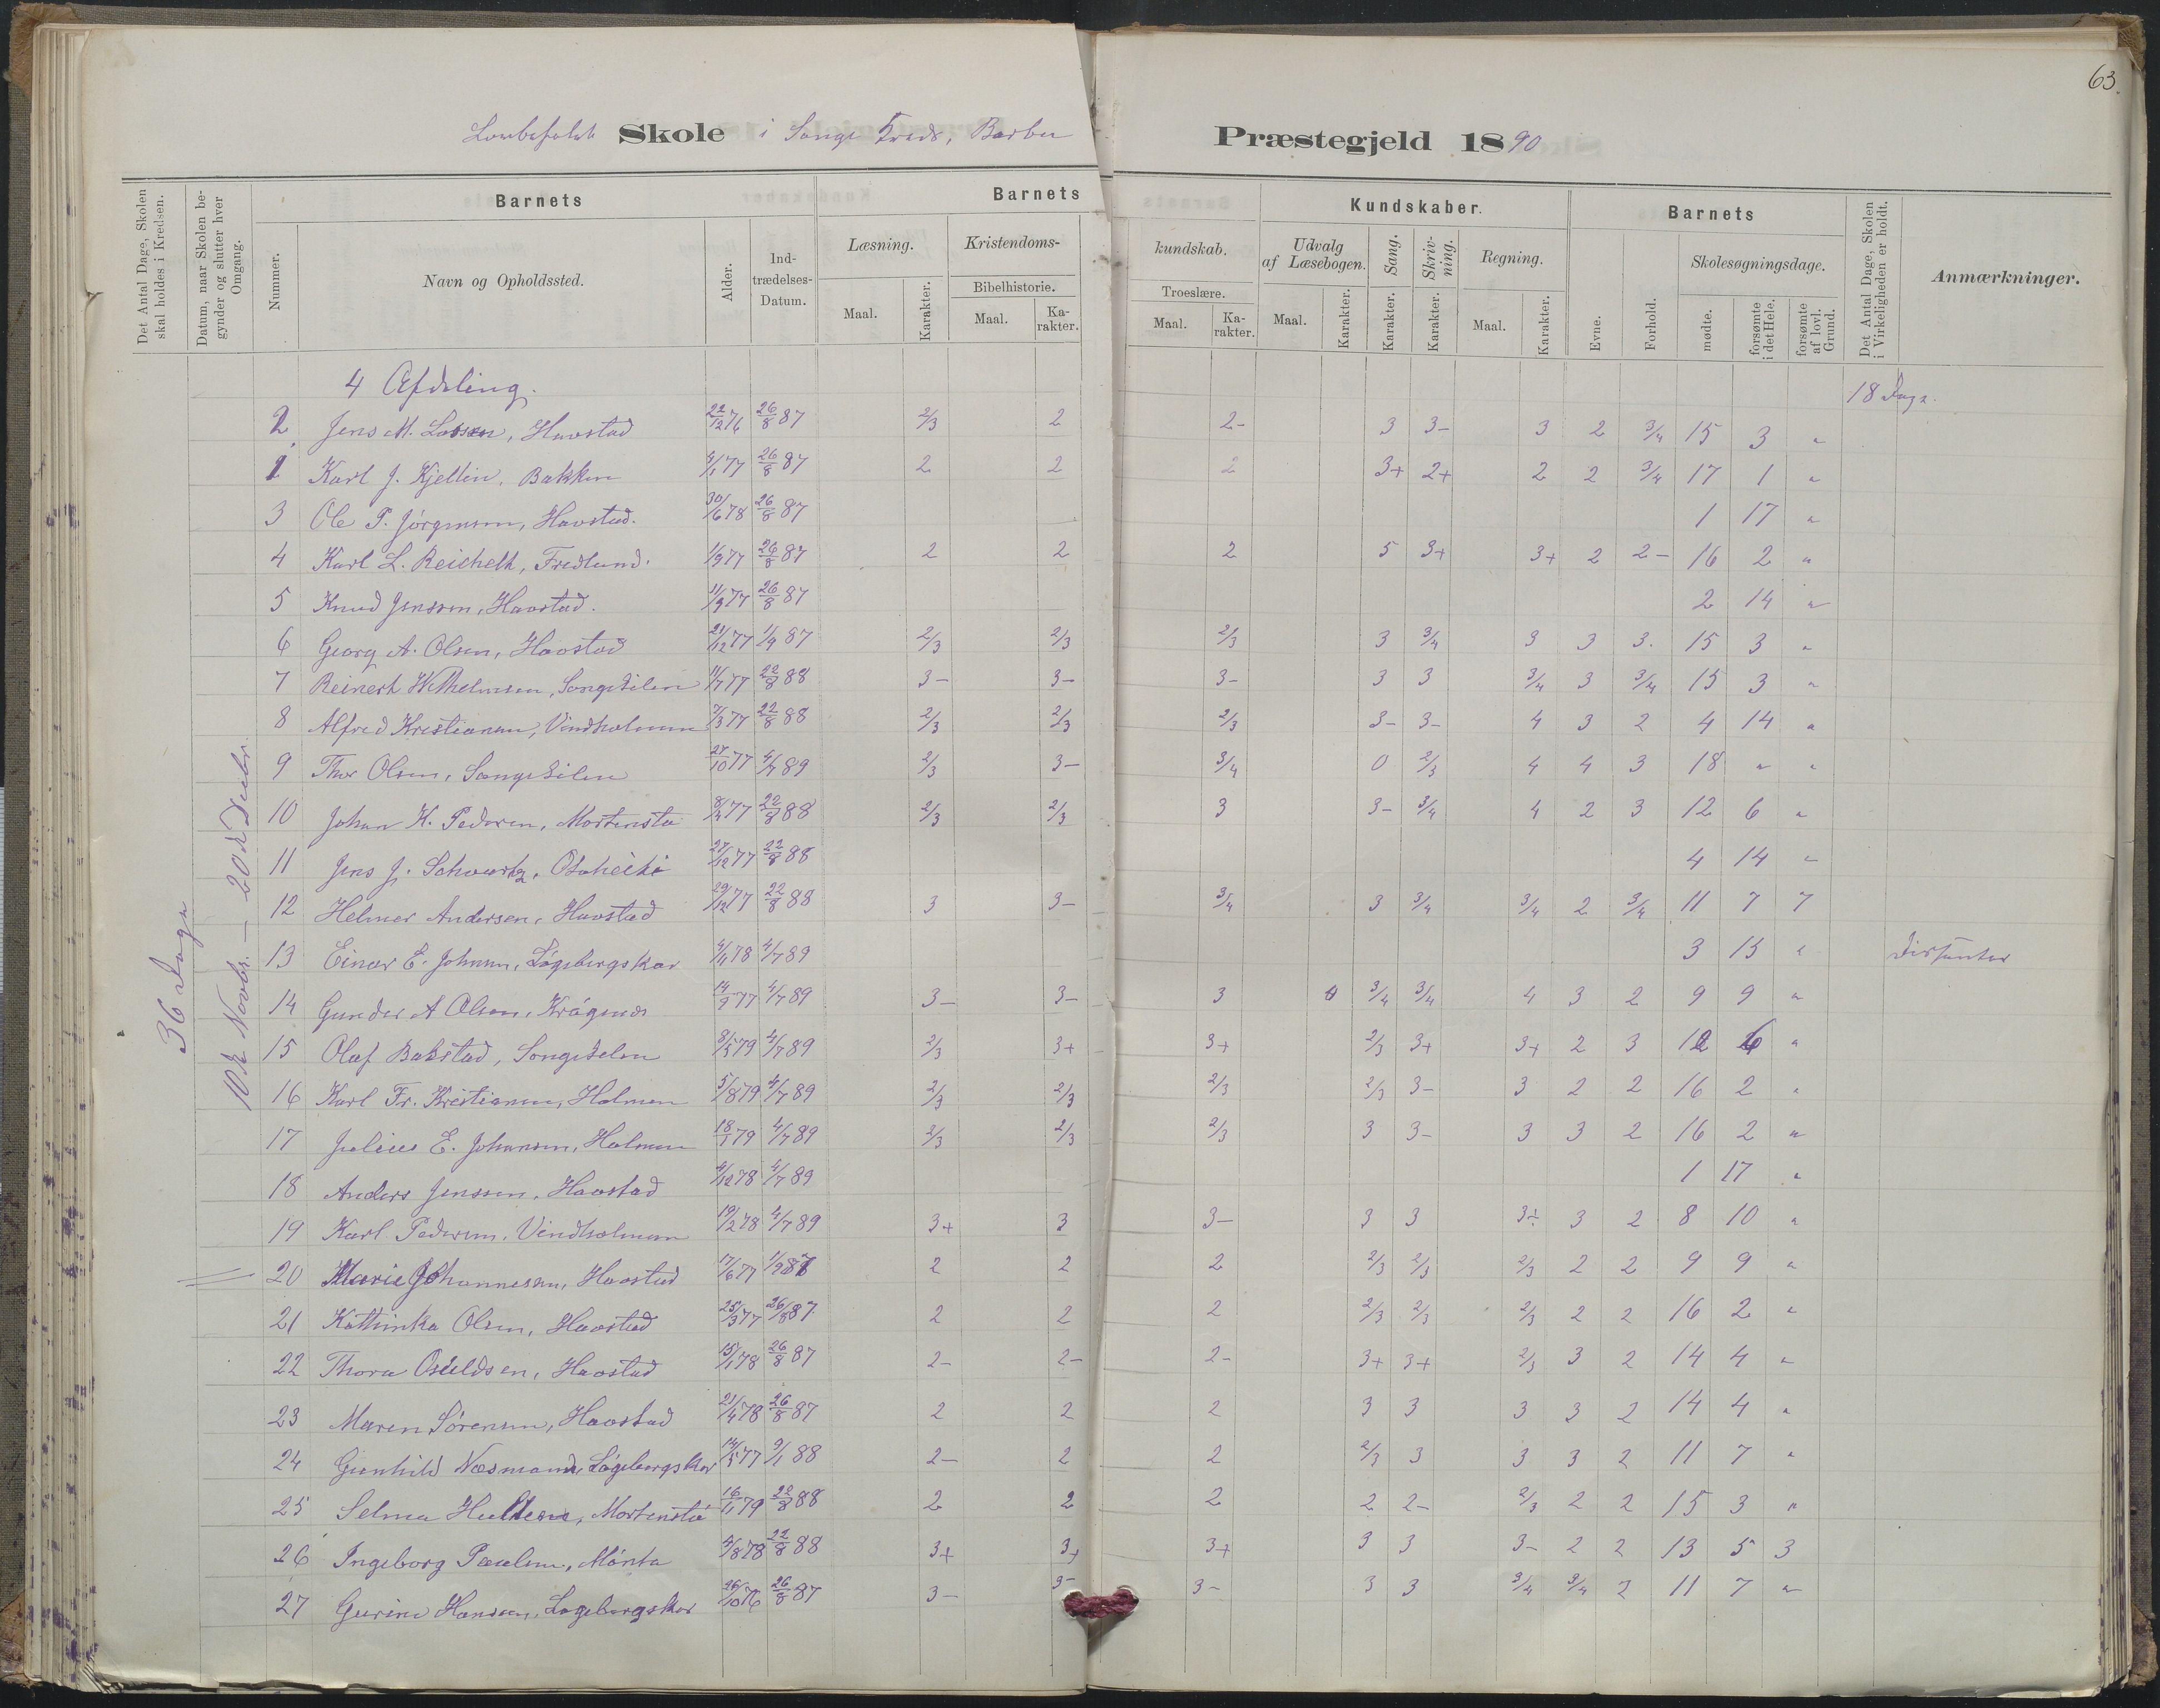 63.
Skole i Songe Kreds, Barbu Præstegjeld 1890
Det Antal Dage, Skolen skal holdes i Kredsen.
Datum, naar Skolen begynder og slutter hver Omgang.
Barnets
Nummer.
Navn og Opholdssted.
Alder.
Indtrædelses-Datum.
Barnets Kundskaber.
Læsning.
Maal.
Karakter.
Kristendomskundskab.
Bibelhistorie.
Maal.
Karakter.
Troeslære.
Maal.
Karakter.
Udvalg af Læsebogen.
Maal.
Karakter.
Sang.
Karakter.
Skrivning.
Karakter.
Regning.
Maal.
Karakter.
Barnets
Evne.
Forhold.
Skolesøgningsdage.
mødte.
forsømte i det Hele.
forsømte af lovl. Grund.
Det Antal Dage, Skolen i Virkeligheden er holdt.
Anmærkninger.
36 Dage
10de Novbr. — 20de Decbr.
4 Afdeling.
18 Dage.
2 Jens M. Larsen, Havstad 22/12 76 26/8 87 2/3 2 2- 3 3- 3 2 3/4 15 3 "
1 Karl J. Kjellin, Bakken 4/1 77 26/8 87 2 2 2 3+ 2+ 2 2 3/4 17 1 "
3 Ole P. Jörgensen, Havstad. 30/6 78 26/8 87 1 17 "
4 Karl L. Reichelt, Fredlund. 1/9 77 26/8 87 2 2 2 5 3+ 3+ 2 2- 16 2 "
5 Knud Jenssen, Havstad. 11/9 77 26/8 87 2 14 "
6 Georg A. Olsen, Havstad 21/12 77 1/9 87 2/3 2/3 2/3 3 3/4 3 3 3. 15 3 "
7 Reinert Wilhelmsen, Songekilen 11/7 77 22/8 88 3- 3- 3- 3 3 3/4 3 3/4 15 3 "
8 Alfred Kristiansen, Vindholmen 7/3 77 22/8 88 2/3 2/3 2/3 3- 3- 4 3 2 4 14 "
9 Thor Olsen, Songekilen 27/10 77 4/7 89 2/3 3- 3/4 0 2/3 4 4 3 18 " "
10 Johan K. Pedersen, Mortensto 77 22/8 88 2/3 2/3 3 3- 3/4 4 2 3 12 6 "
11 Jens J. Schwartz, Otaheiti 27/12 77 22/8 88 4 14 "
12 Helmer Andersen, Havstad 29/12 77 22/8 88 3 3- 3/4 3 3/4 3/4 2 3/4 11 7 7
13 Einar E. Johnsen, Lögebergskar 78 4/7 89 3 15 " Dissenter
14 Gunder A Olsen, Krögenes 77 4/7 89 3- 3- 3 3/4 3/4 4 3 2 9 9 "
15 Olaf Bakstad, Songekilen 79 4/7 89 2/3 3+ 3+ 2/3 3+ 3+ 2 3 12 6 "
16 Karl Fr. Kristiansen, Holmen 5/8 79 4/7 89 2/3 2/3 2/3 2/3 3- 3 2 2 16 2 "
17 Julius E. Johansen, Holmen 18/1 79 4/7 89 2/3 2/3 2/3 3 3- 3 3 2 16 2 "
18 Anders Jenssen, Havstad 4/12 78 4/7 89 1 17 "
19 Karl Pedersen, Vindholmen 19/2 78 4/7 89 3+ 3 3- 3 3 3 2 8 10 "
20 Marie Johannesen, Havstad 17/6 77 1/9 87 2 2 2 2/3 2/3 2/3 2 2 9 9 "
21 Kathinka Olsen, Havstad 25/3 77 26/8 87. 2 2 2 2/3 2/3 2/3 2 2 16 2 "
22 Thora Osuldsen, Havstad 15/1 78 26/8 87 2- 2- 2- 3+ 3+ 2/3 3 2 14 4 "
23 Maren Sörensen, Havstad 21/4 78 26/8 87 2 2 2 3 3 3 3 2 14 4 "
24 Gunhild Næsmand, Lögebergskar 77 9/1 88 2- 2 2 2/3 3 3 3 2 11 7 "
25 Selma Mortensto 79 22/8 88 2 2 2 2 2- 2/3 2 2 15 3 "
26 Ingeborg Paulsen, 4/8 78 22/8 88 3+ 3+ 3+ 3 3 3- 2 2 13 5 3
27 Gurine Hansen, Lögebergskar 26/10 76 26/8 87 3- 3- 3- 3 3 3/4 3/4 2 11 7 "